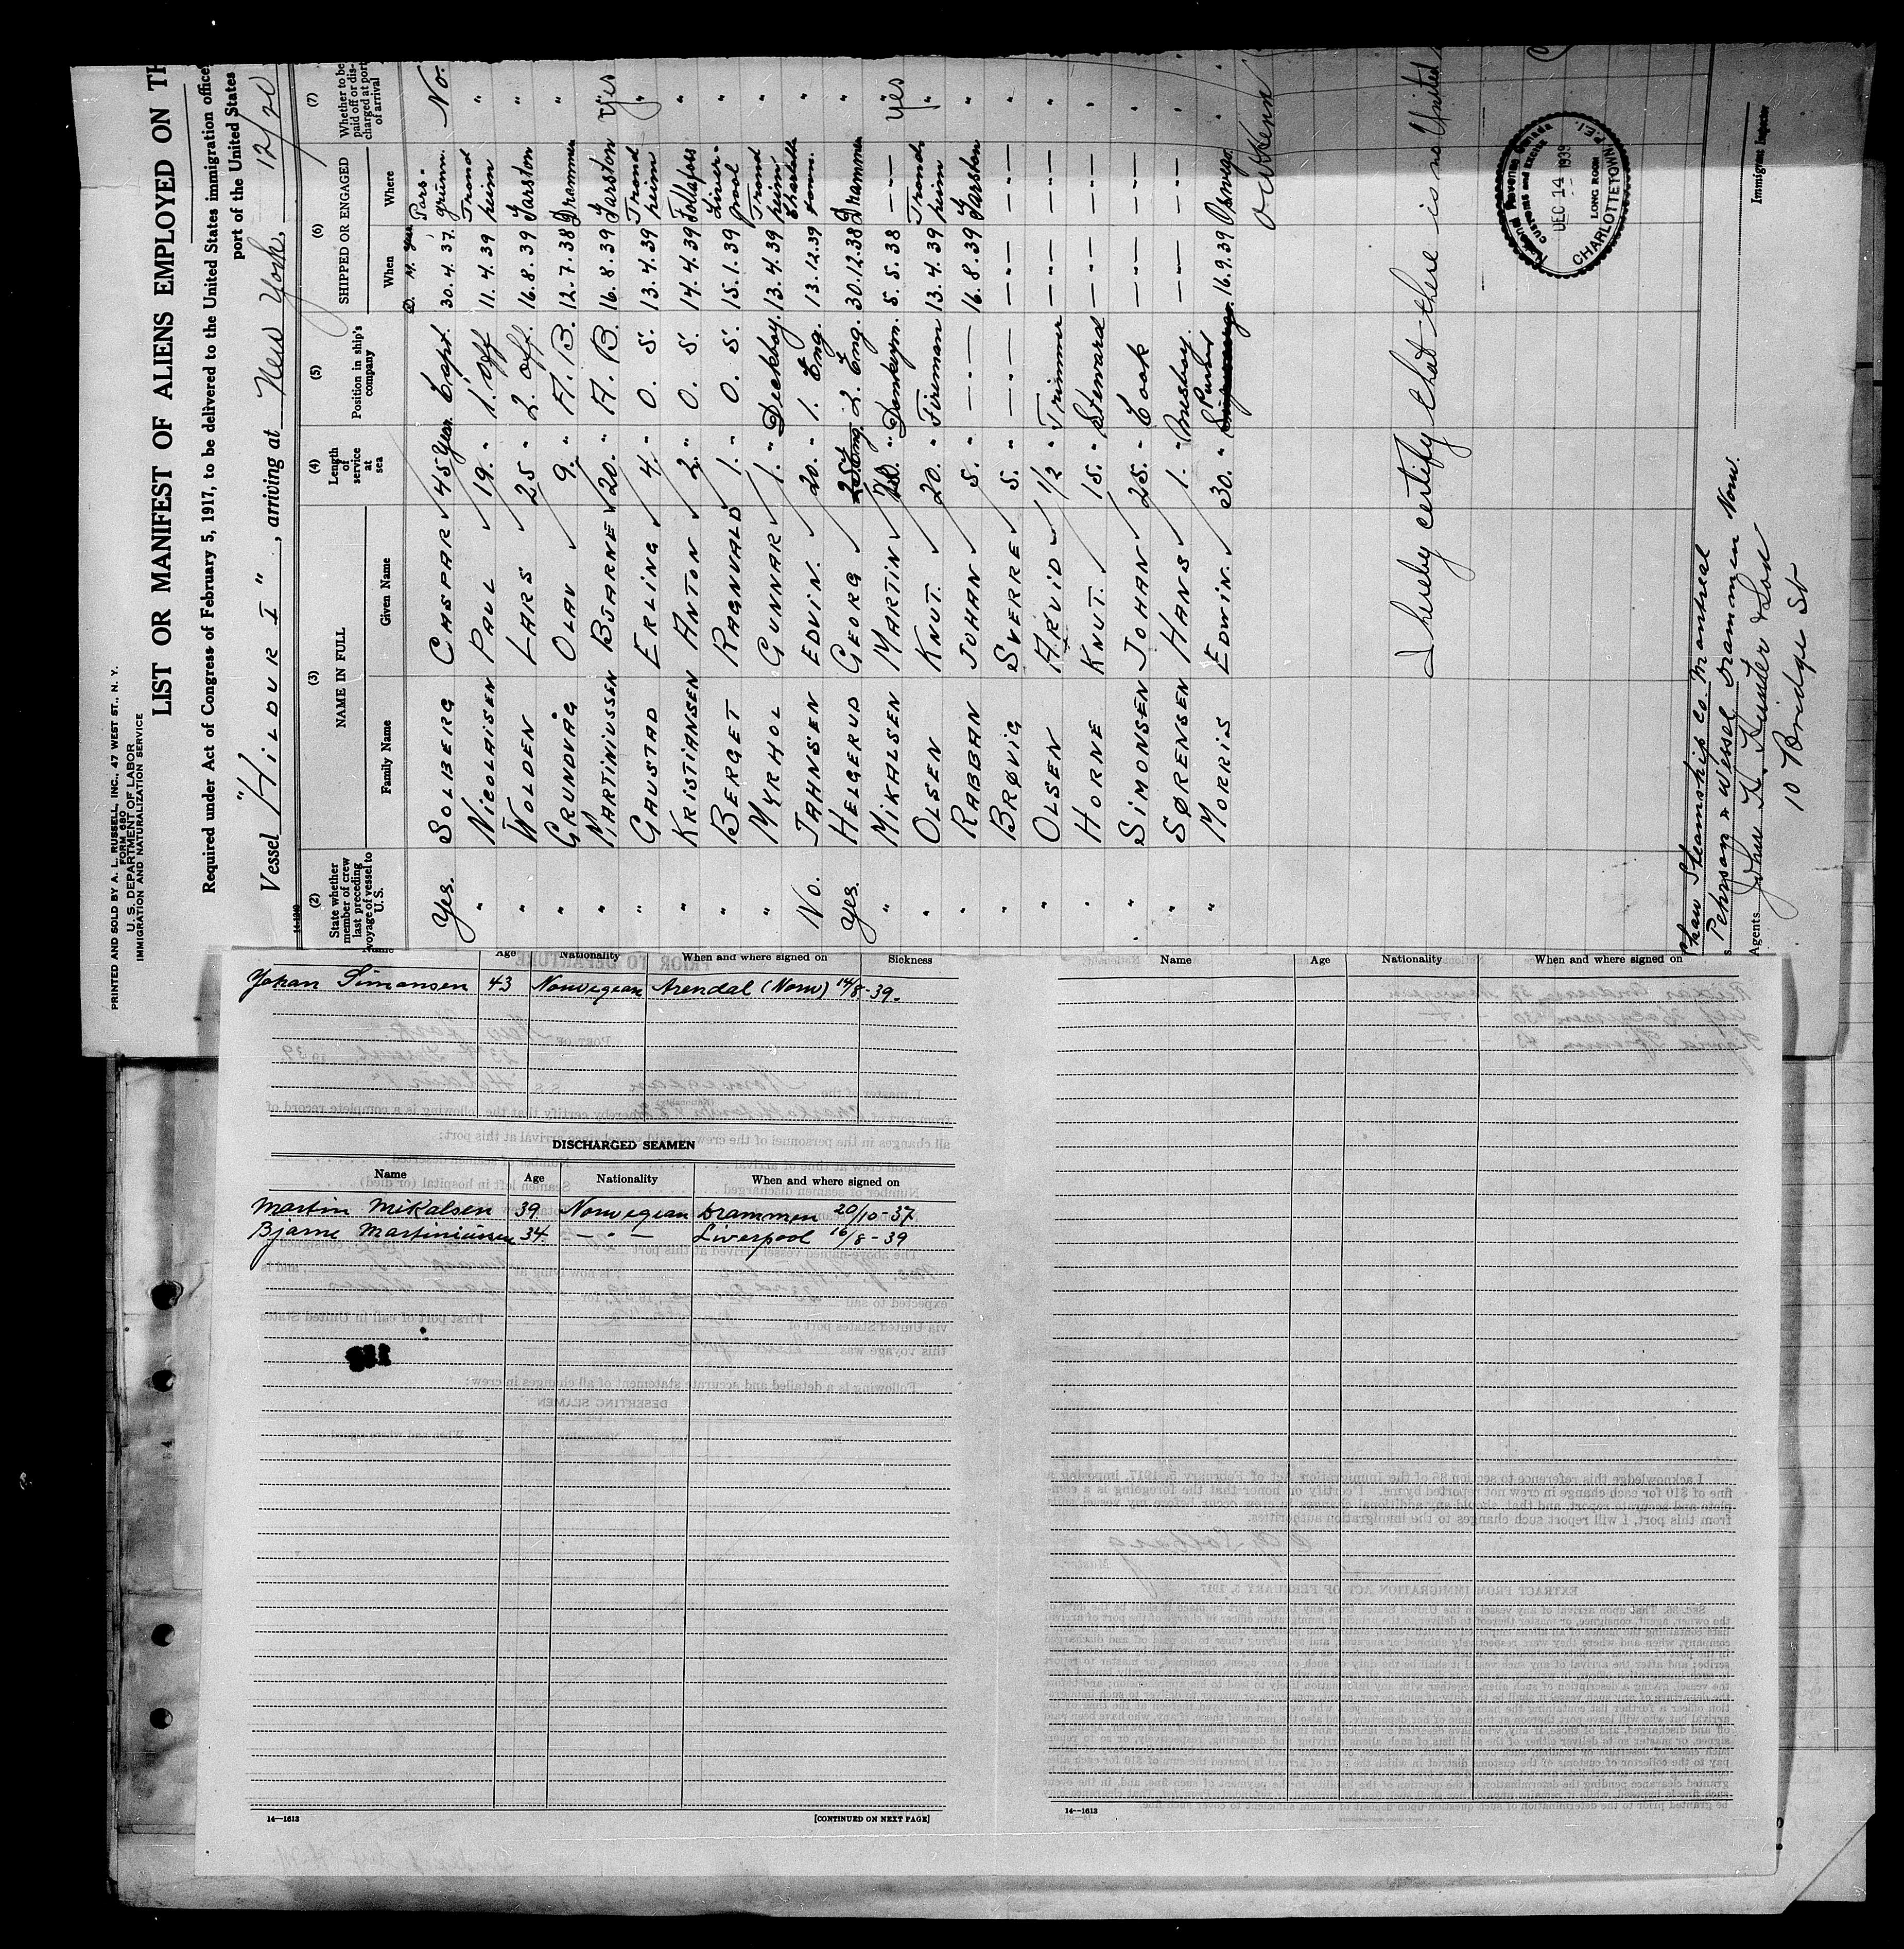 PRINTED AND SOLD BY A. L. RUSSELL, INC., 47 WEST ST., N. Y.
FORM 680
U. S. DEPARTMENT OF LABOR
IMMIGRATION AND NATURALIZATION SERVICE
LIST OR MANIFEST OF ALIENS EMPLOYED ON TH
Required under Act of Congress of February 5, 1917, to be delivered to the United States immigration office
port of the United States
Vessel "HILDUR I", arriving at New York, 12/20
(2) (3) (4) (5) (6) (7)
State whether member of crew last preceding voyage of vessel to U.S. NAME IN FULL Length of service at sea Position in ship's company SHIPPED OR ENGAGED Whether to be paid off or discharged at port of arrival
Family Name Given Name When Where
D. M. Year
Yes. SOLBERG CASPAR 45 Year Capt. 30. 4. 37. Porsgrunn. No.
" NICOLAISEN PAUL 19. " 1. Off 11. 4. 39 Trondheim "
" WOLDEN LARS 25 " 2. Off. 16. 8. 39 Garston "
" GRUNDVÅG OLAV 9. " A. B. 12. 7. 38 Drammen "
" MARTINIUSSEN BJARNE 20. " A. B. 16. 8. 39 Garston yes
" GAUSTAD ERLING 4. " O. S. 13. 4. 39 Trondheim "
" KRISTIANSEN ANTON 2. " O. S. 14. 4. 39 Follafoss "
" BERGET RAGNVALD 1. " O. S. 15. 1. 39 Liverpool "
" MYRHOL GUNNAR 1. " Deckboy. 13. 4. 39 Trondheim "
No. JAHNSEN EDVIN. 20. " 1. Eng. 13. 12. 39 Charlottetown. "
Yes. HELGERUD GEORG 2. Eng. 30. 12. 38 Drammen "
" MIKALSEN MARTIN " Donkeym. 5. 5. 38 — " — yes
" OLSEN KNUT. 20. " Fireman 13. 4. 39 Trondheim "
" RABBAN JOHAN 5. " — . — 16. 8. 39 Garston "
" BRØVIG SVERRE 5. " — . — — " — — " — "
" OLSEN ARVID 1/2 " Trimmer — " — — " — "
" HORNE KNUT. 15. " Steward — " — — " — "
" SIMONSEN JOHAN 25. " Cook — " — — " — "
" SØRENSEN HANS 1. " Messboy. — " — — " — "
" MORRIS EDWIN. 30. " 16. 9. 39 Oswego. "
I hereby certify that there is no United
National Revenue Canada
CUSTOMS AND EXCISE
DEC 14 1939
LONG ROOM
CHARLOTTETOWN P.E.I.
Shaw Steamship Co. Montreal
Pehrson & Wessel Drammen Norw.
Agents
10 Bridge St
Immigrant Inspector
Name Age Nationality When and where signed on Sickness
Johan Simonsen 43 Norwegian Arendal (Norw) 14/8-39.
DISCHARGED SEAMEN
Name Age Nationality When and where signed on
Martin Mikalsen 39 Norwegian Drammen 20/10-37
Bjarne Martiniussen 34 — . — Liverpool 16/8-39
14—1613
[CONTINUED ON NEXT PAGE]
Name Age Nationality When and where signed on
14—1613